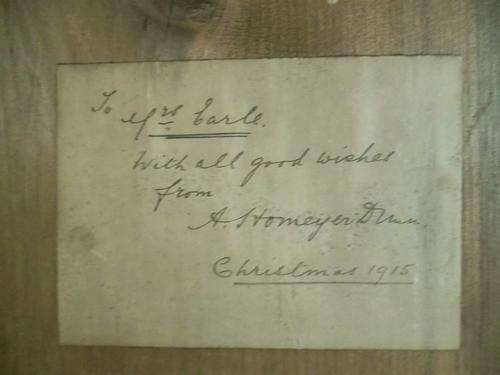 To
Mrs Earle.
With all good wishes
from
A. Homeyer Dunn.
Christmas 1915